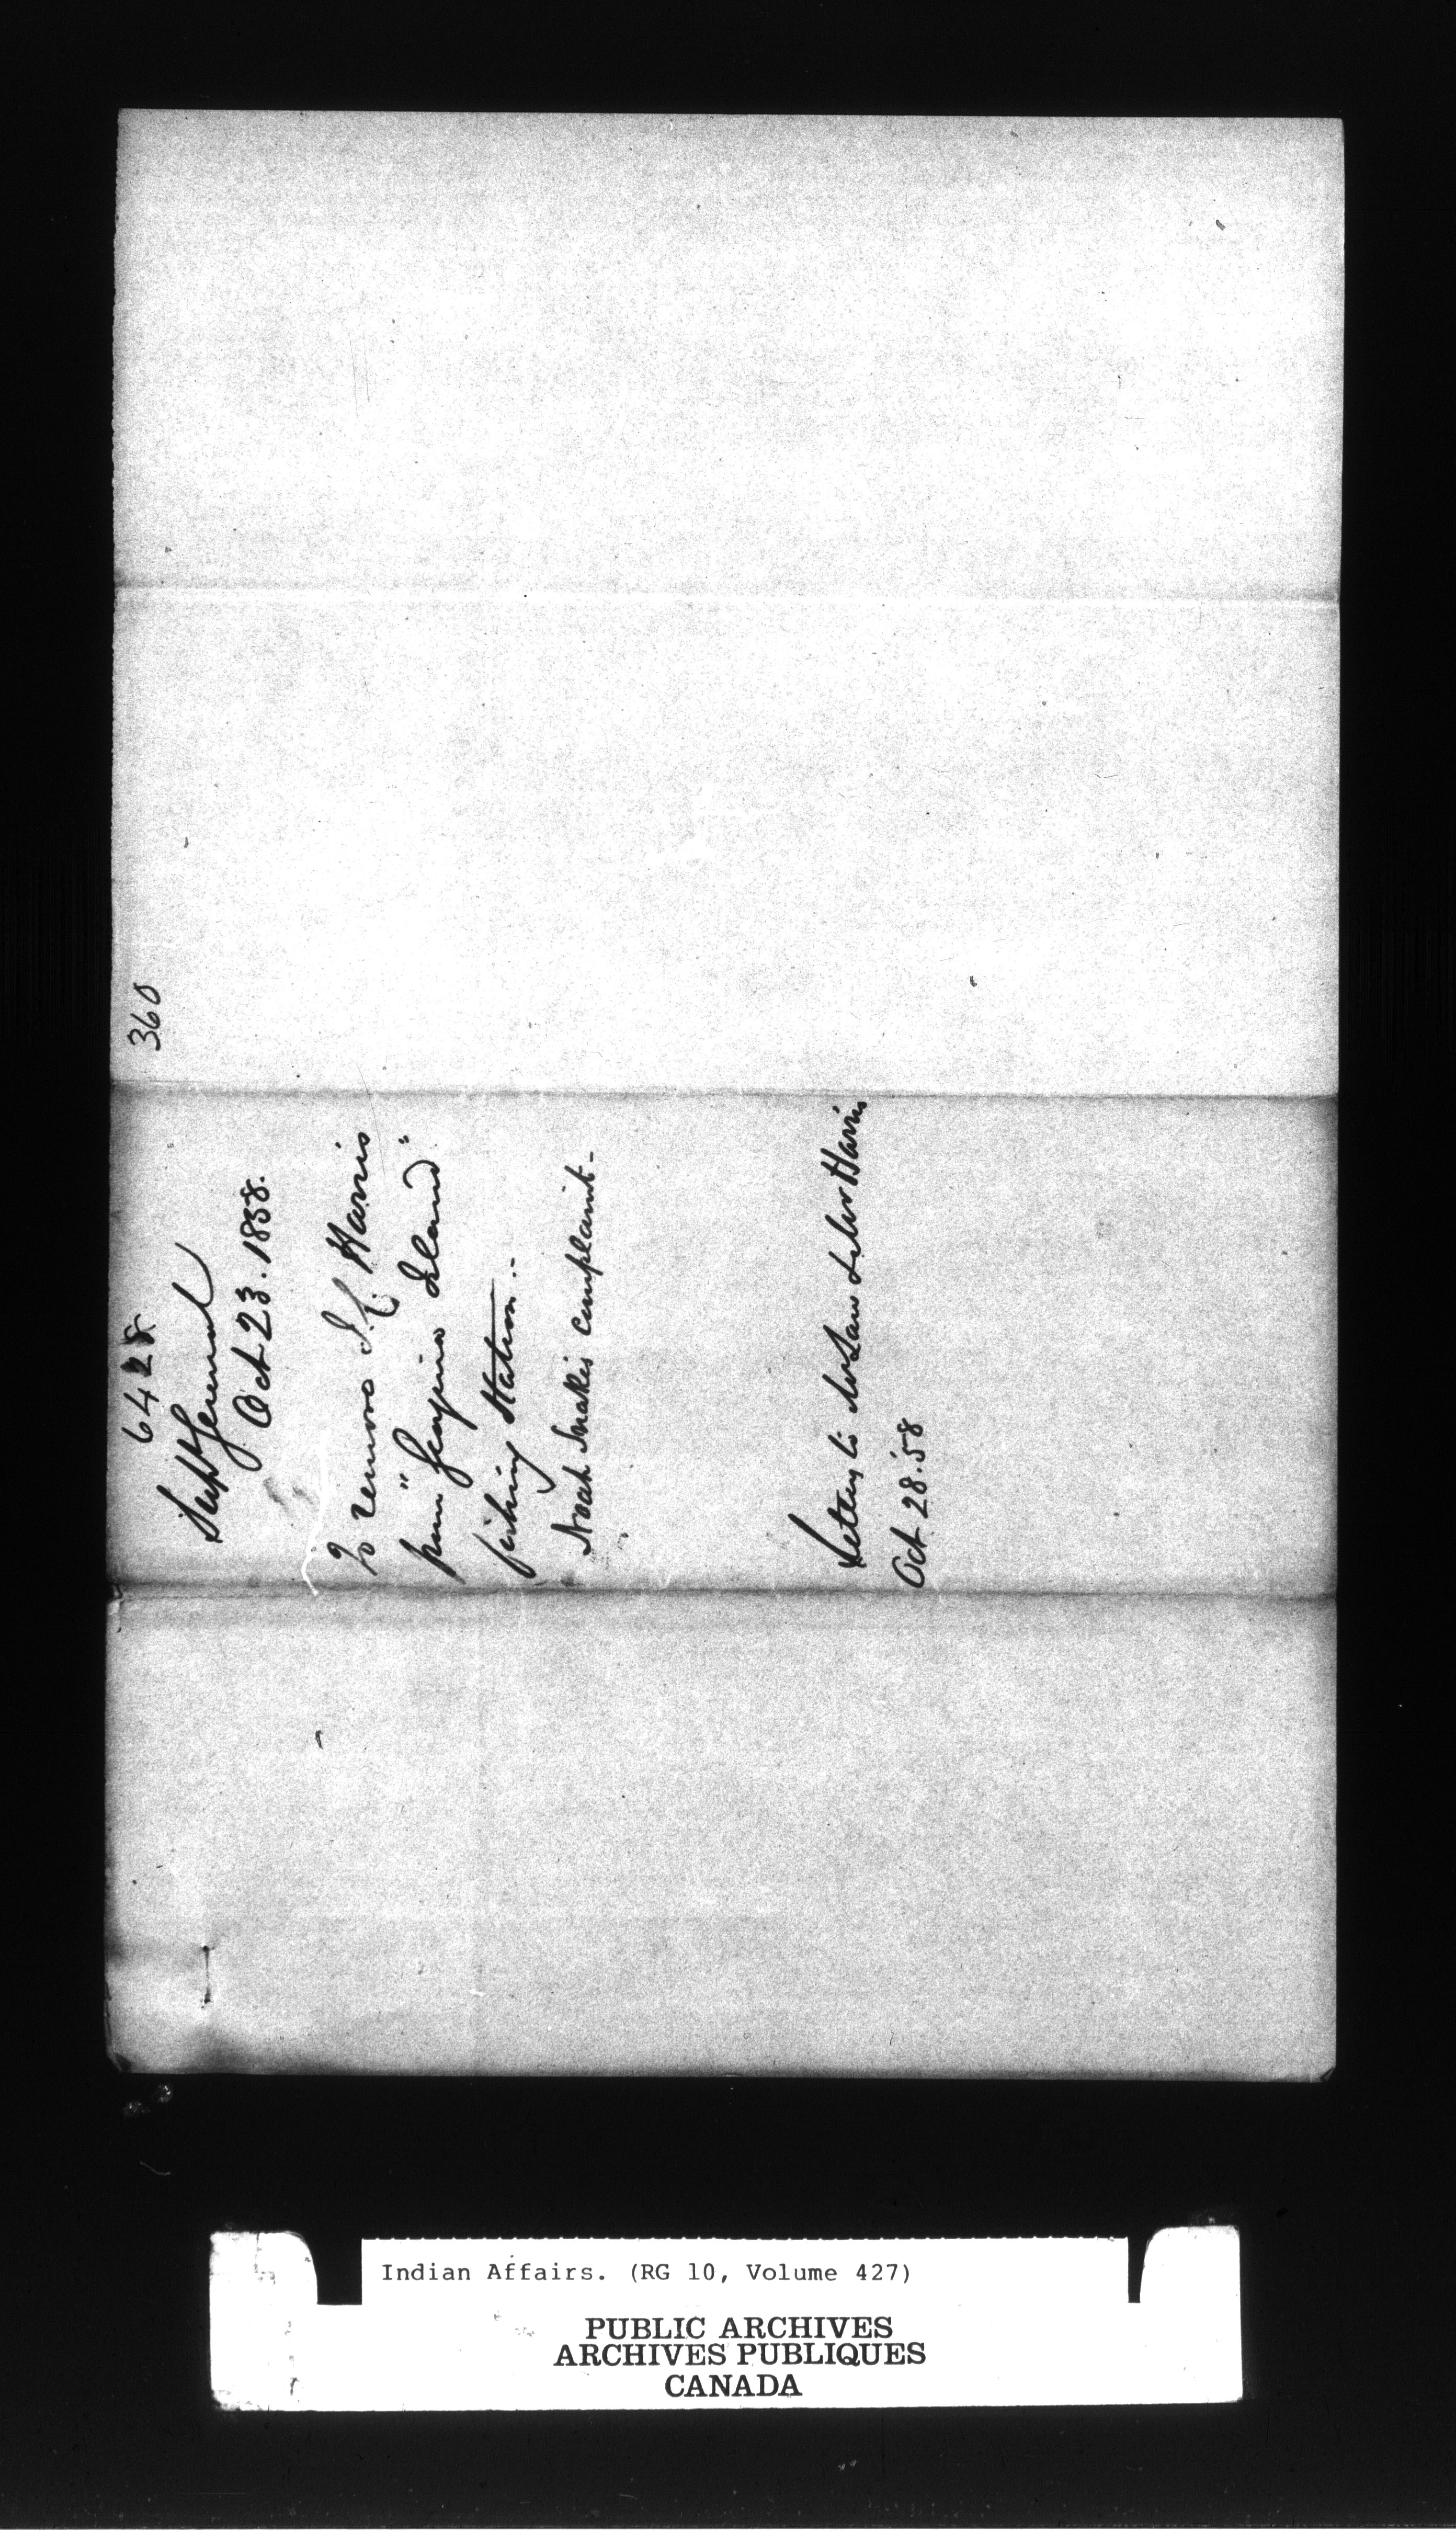 360
6428
Supt General
Oct 23. 1858.
To remove J. C. Harris
from "Georgina Island"
fishing Station.-
Noah Snakes complaint-
Letters to Mr Law & Mr Harris
Oct 28. '58
Indian Affairs. (RG 10, Volume 427)
PUBLIC ARCHIVES
ARCHIVES PUBLIQUES
CANADA